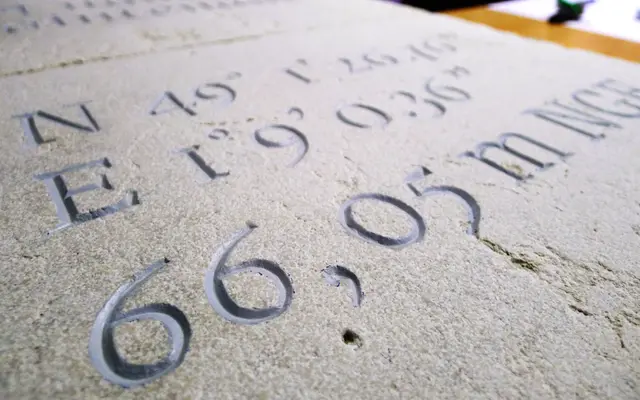 N 49° 1' 26.16"
E 1° 9' 0.36"
66,05 m NGF